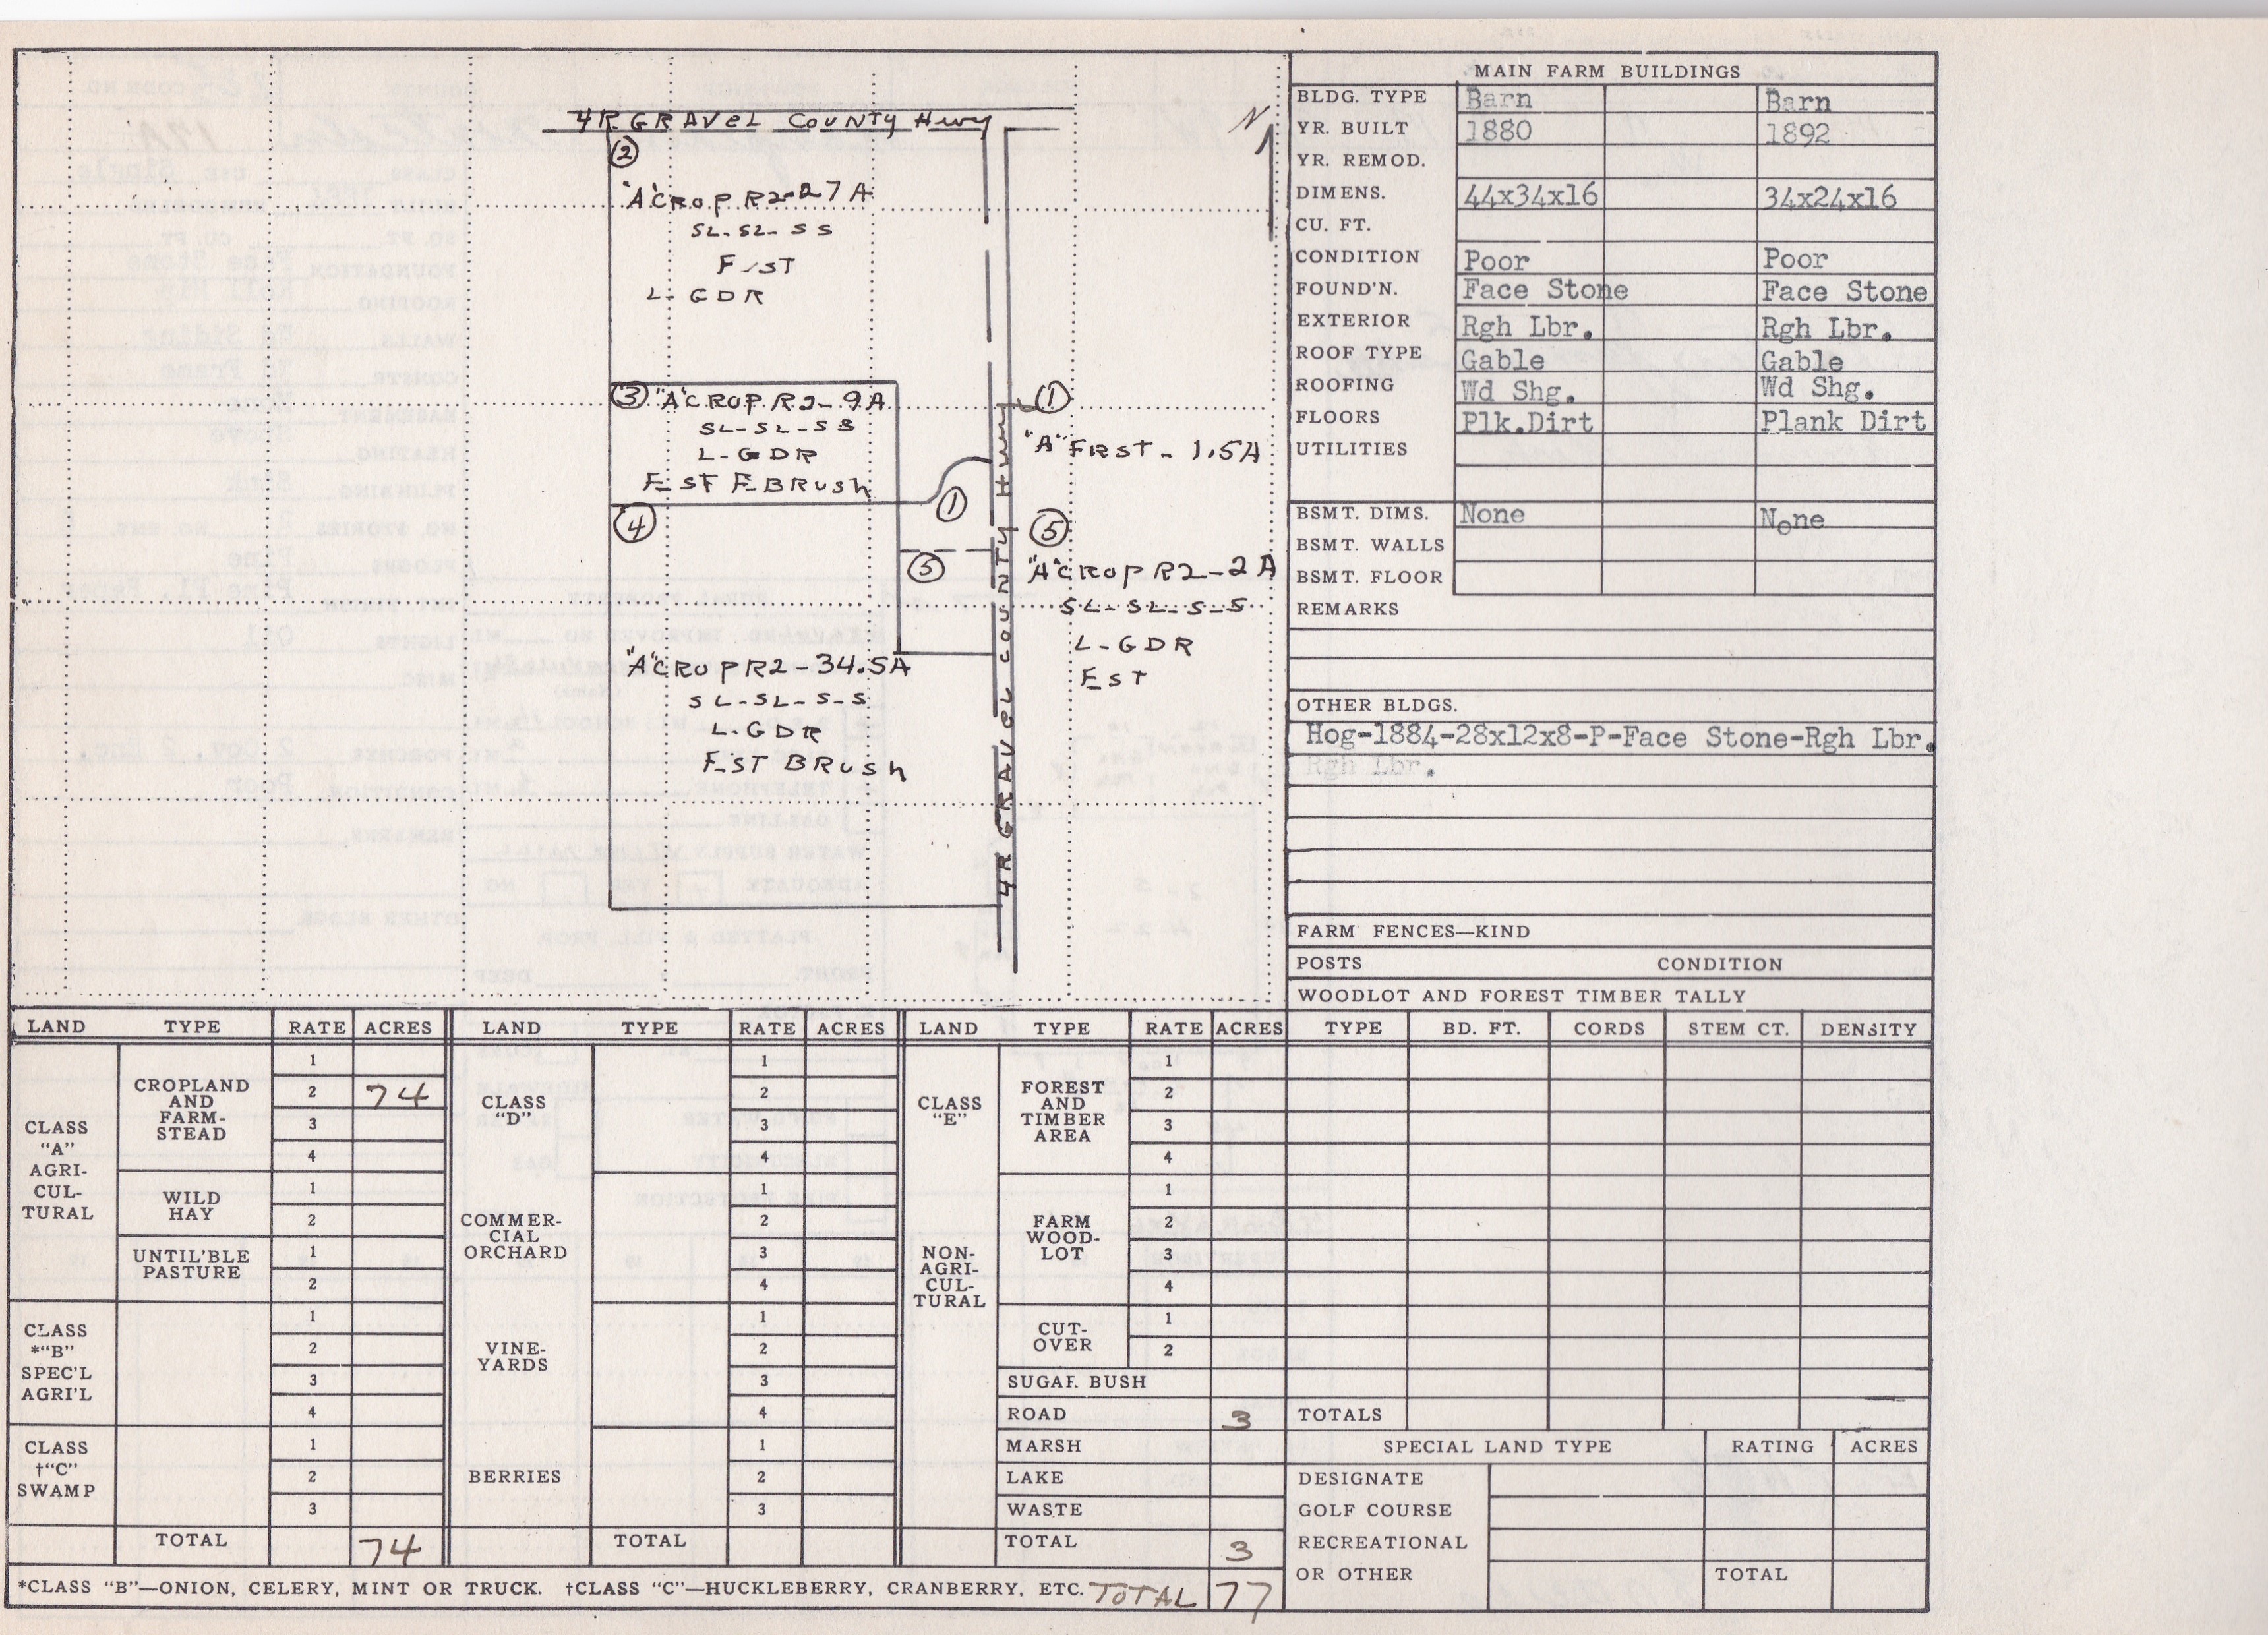 4R GRAVEL COUNTY HWY
N
②
"A" CROP R2-27A
SL-SL-SS
F/ST
L-GDR
③ "A" CROP R2-9A
SL-SL-SS
L-GDR
EST F BRUSH
④
①
⑤
"A" CROP R2-34.5A
SL-SL-S-S
L-GDR
EST BRUSH
4R GRAVEL COUNTY HWY
①
"A" FRST-1.5A
⑤
"A" CROP R2-2A
SL-SL-S-S
L-GDR
EST
MAIN FARM BUILDINGS
BLDG. TYPE Barn Barn
YR. BUILT 1880 1892
YR. REMOD.
DIMENS. 44x34x16 34x24x16
CU. FT.
CONDITION Poor Poor
FOUND'N. Face Stone Face Stone
EXTERIOR Rgh Lbr. Rgh Lbr.
ROOF TYPE Gable Gable
ROOFING Wd Shg. Wd Shg.
FLOORS Plk.Dirt Plank Dirt
UTILITIES
BSMT. DIMS. None None
BSMT. WALLS
BSMT. FLOOR
REMARKS
OTHER BLDGS.
Hog-1884-28x12x8-P-Face Stone-Rgh Lbr.
Rgh Lbr.
FARM FENCES—KIND
POSTS CONDITION
WOODLOT AND FOREST TIMBER TALLY
TYPE BD. FT. CORDS STEM CT. DENSITY
TOTALS
SPECIAL LAND TYPE RATING ACRES
DESIGNATE
GOLF COURSE
RECREATIONAL
OR OTHER TOTAL
LAND TYPE RATE ACRES
CLASS
"A"
AGRI-
CUL-
TURAL
CROPLAND
AND
FARM-
STEAD
1
2 74
3
4
WILD
HAY
1
2
UNTIL'BLE
PASTURE
1
2
CLASS
*"B"
SPEC'L
AGRI'L
1
2
3
4
CLASS
†"C"
SWAMP
1
2
3
TOTAL 74
LAND TYPE RATE ACRES
CLASS
"D"
1
2
3
4
COMMER-
CIAL
ORCHARD
1
2
3
4
VINE-
YARDS
1
2
3
4
BERRIES
1
2
3
TOTAL
LAND TYPE RATE ACRES
CLASS
"E"
NON-
AGRI-
CUL-
TURAL
FOREST
AND
TIMBER
AREA
1
2
3
4
FARM
WOOD-
LOT
1
2
3
4
CUT-
OVER
1
2
SUGAR BUSH
ROAD 3
MARSH
LAKE
WASTE
TOTAL 3
*CLASS "B"—ONION, CELERY, MINT OR TRUCK. †CLASS "C"—HUCKLEBERRY, CRANBERRY, ETC. TOTAL 77